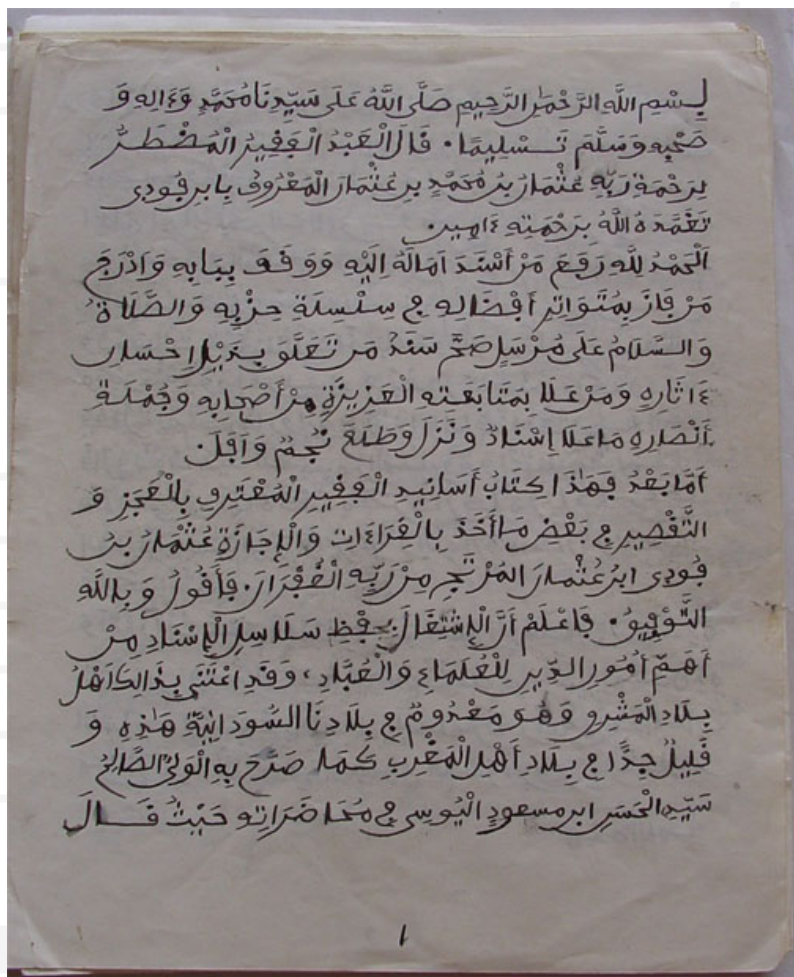 بِسْمِ اللَّهِ الرَّحْمَٰنِ الرَّحِيمِ صَلَّى اللَّهُ عَلَى سَيِّدِنَا مُحَمَّدٍ وَءَالِهِ وَ
صَحْبِهِ وَسَلَّمَ تَسْلِيمًا . قَالَ الْعَبْدُ الْفَقِيرُ الْمُضْطَرُّ
لِرَحْمَةِ رَبِّهِ عُثْمَانُ بْنُ مُحَمَّدٍ بْنِ عُثْمَانَ الْمَعْرُوفُ بِابْنِ فُودِي
تَغَمَّدَهُ اللَّهُ بِرَحْمَتِهِ ءَامِين
اَلْحَمْدُ لِلَّهِ رَفَعَ مَنْ أَسْنَدَ امَالَهُ إِلَيْهِ وَوَقَفَ بِبَابِهِ وَأَدْرَجَ
مَنْ فَازَ بِمُتَوَاتِرِ أَفْضَالِهِ فِي سِلْسِلَةِ حِزْبِهِ وَالصَّلَاةُ
وَالسَّلَامُ عَلَى مُرْسَلٍ صَحَّ سَنَدُ مَنْ تَعَلَّقَ بِذَيْلِ إِحْسَانِ
ءَاثَارِهِ وَمَنْ عَلَا بِمُتَابَعَتِهِ الْعَزِيزَةِ مِنْ أَصْحَابِهِ وَجُمْلَةِ
أَنْصَارِهِ مَا عَلَا إِسْنَادٌ وَنَزَلَ وَطَلَعَ نَجْمٌ وَأَفَلَ .
أَمَّا بَعْدُ فَهَٰذَا كِتَابُ أَسَانِيدِ الْفَقِيرِ الْمُعْتَرِفِ بِالْعَجْزِ وَ
التَّقْصِيرِ فِي بَعْضِ مَا أَخَذَ بِالْقِرَاءَاتِ وَالْإِجَازَةِ عُثْمَانُ بْنُ
فُودِي ابْنُ عُثْمَانَ الْمُرْتَجِي مِنْ رَبِّهِ الْغُفْرَانَ . فَأَقُولُ وَبِاللَّهِ
التَّوْفِيقُ . فَاعْلَمْ أَنَّ الْإِشْتِغَالَ بِحِفْظِ سَلَاسِلِ الْإِسْنَادِ مِنْ
أَهَمِّ أُمُورِ الدِّينِ لِلْعُلَمَاءِ وَالْعُبَّادِ ، وَقَدِ اعْتَنَى بِذَالِكَ أَهْلُ
بِلَادِ الْمَشْرِقِ وَهُوَ مَعْدُومٌ فِي بِلَادِنَا السُّودَانِيَّةِ هَٰذِهِ وَ
قَلِيلٌ جِدًّا فِي بِلَادِ أَهْلِ الْمَغْرِبِ كَمَا صَرَّحَ بِهِ الْوَلِيُّ الصَّالِحُ
سَيِّدِ الْحَسَنِ ابن مسعودٍ الْيُوسِي فِي مُحَاضَرَاتِهِ حَيْثُ قَالَ
١